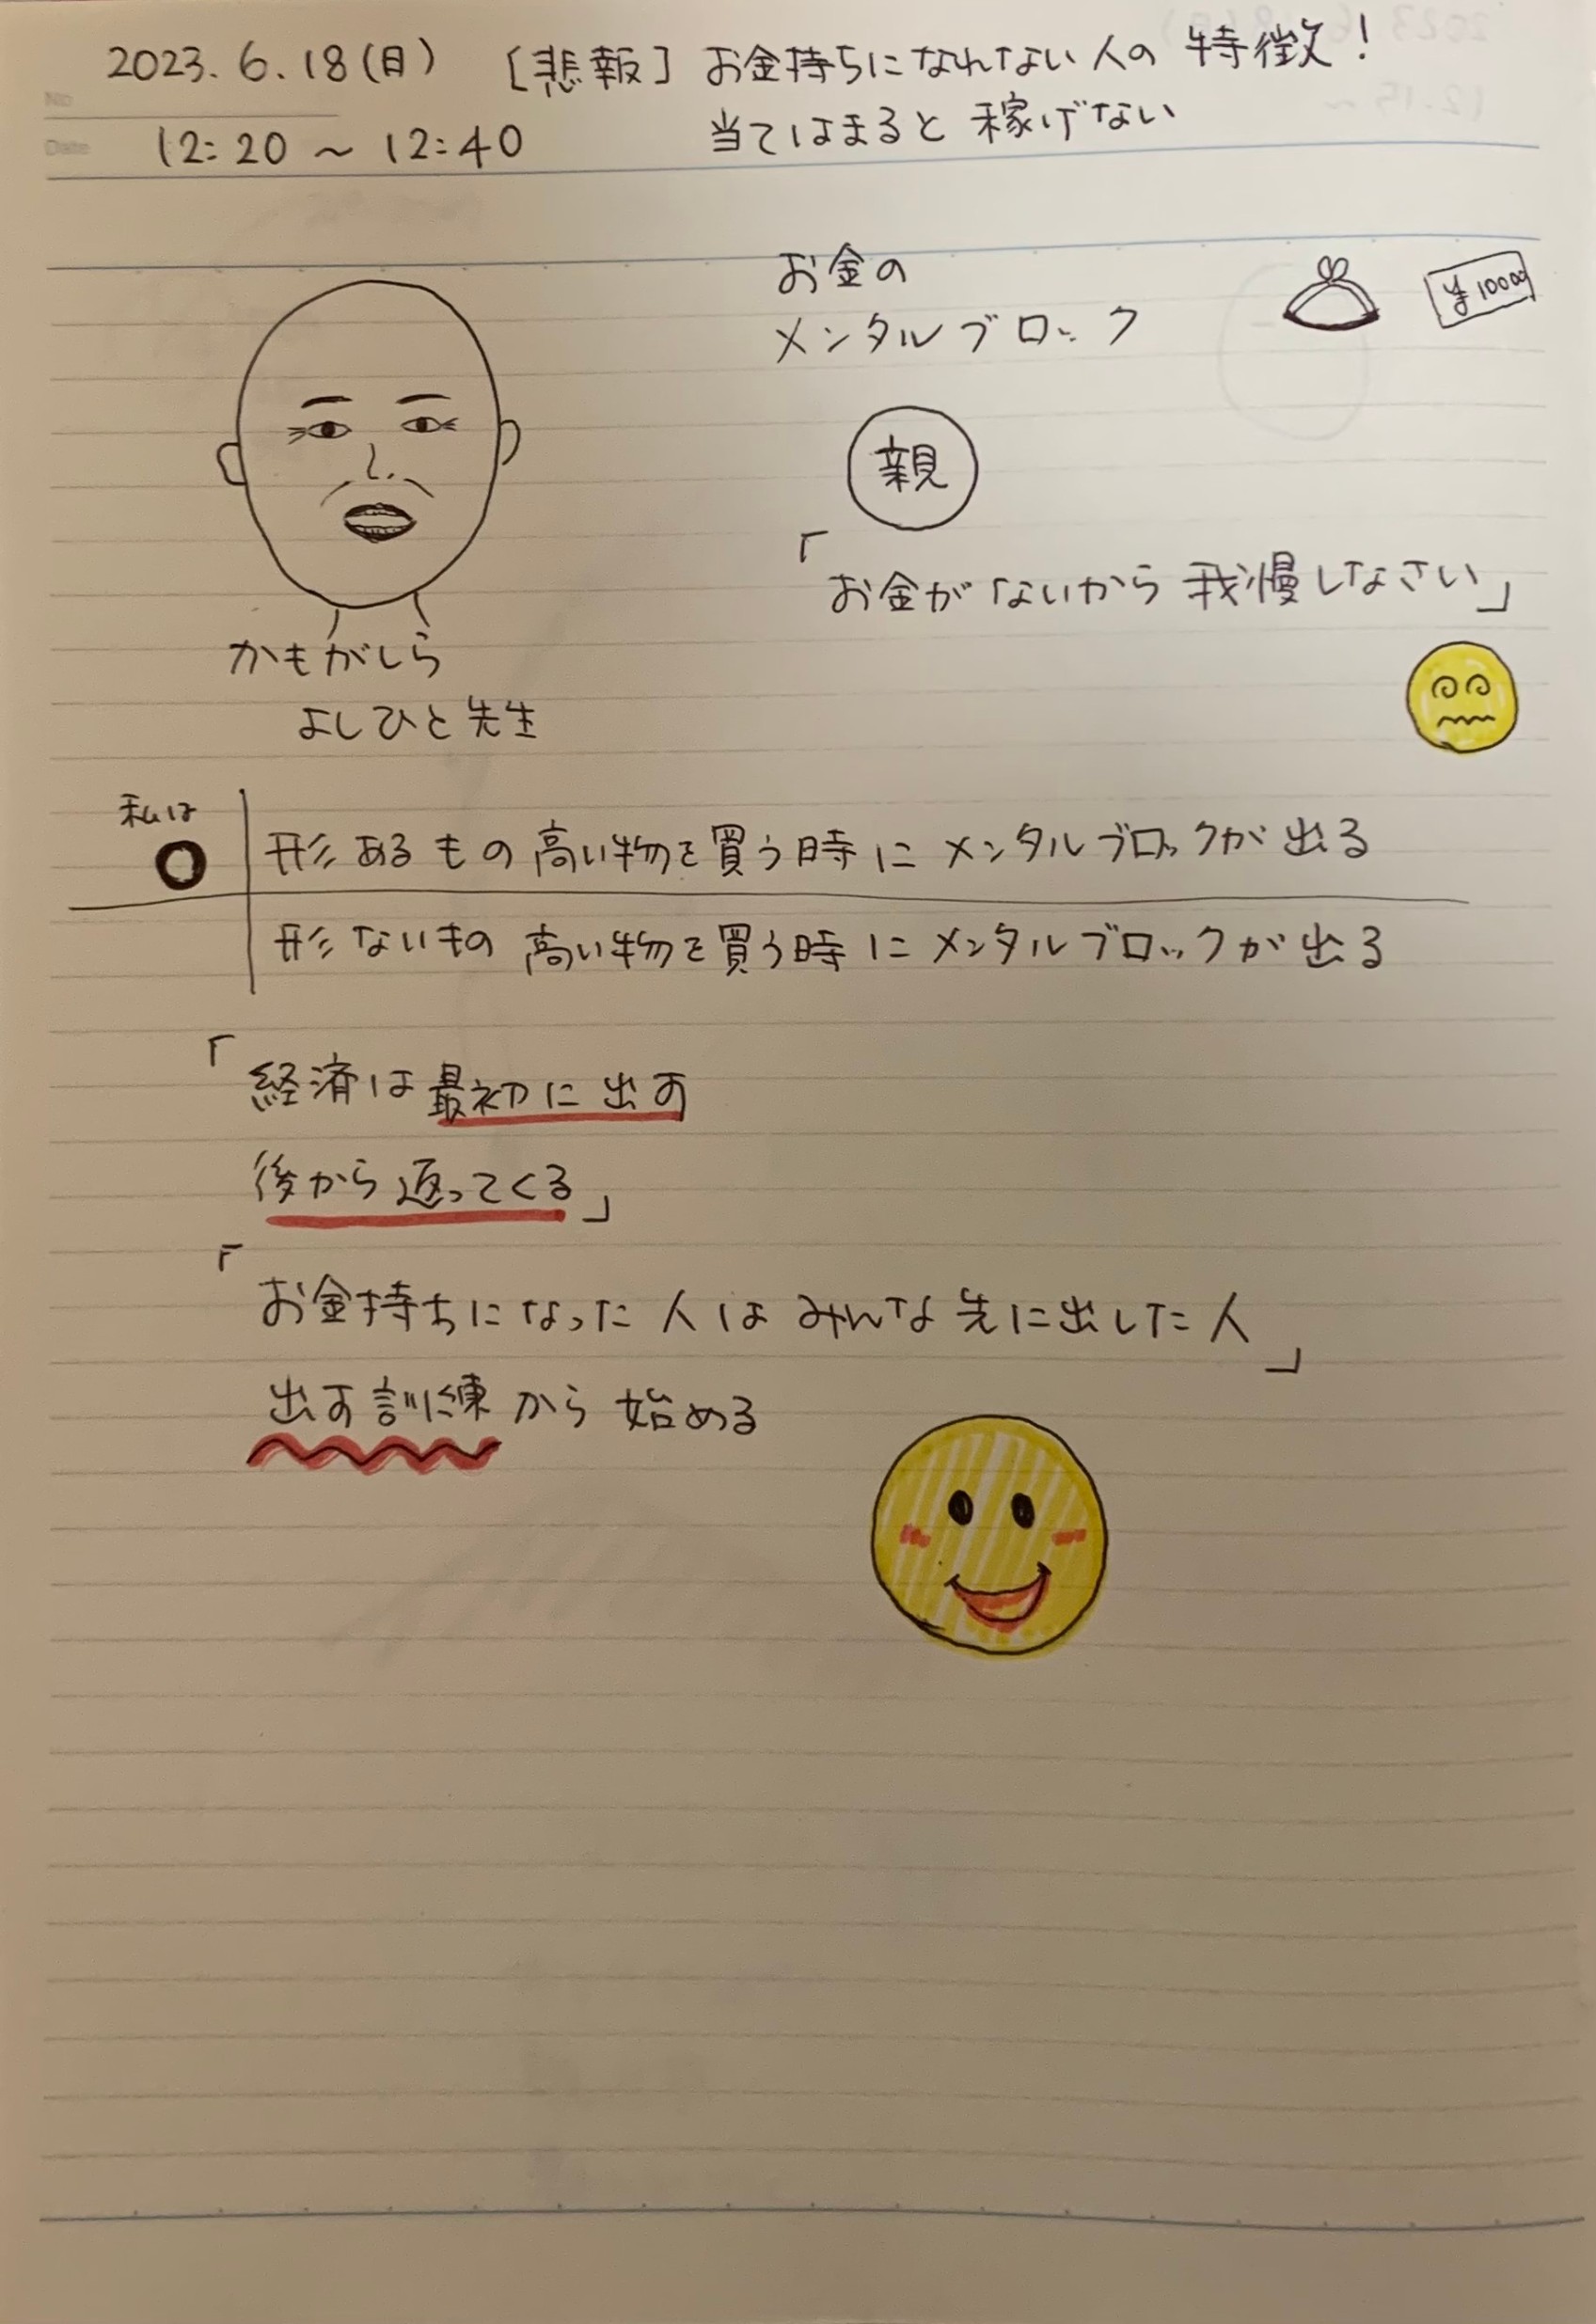 2023. 6. 18(日) [悲報] お金持ちになれない人の特徴!
No
Date
12:20 ~ 12:40 当てはまると稼げない
お金の
メンタルブロック
¥10000
親
「お金がないから我慢しなさい」
かもがしら
よしひと先生
私は
○
形あるもの高い物を買う時にメンタルブロックが出る
形ないもの高い物を買う時にメンタルブロックが出る
「経済は最初に出す
後から返ってくる」
「お金持ちになった人はみんな先に出した人」
出す訓練から始める